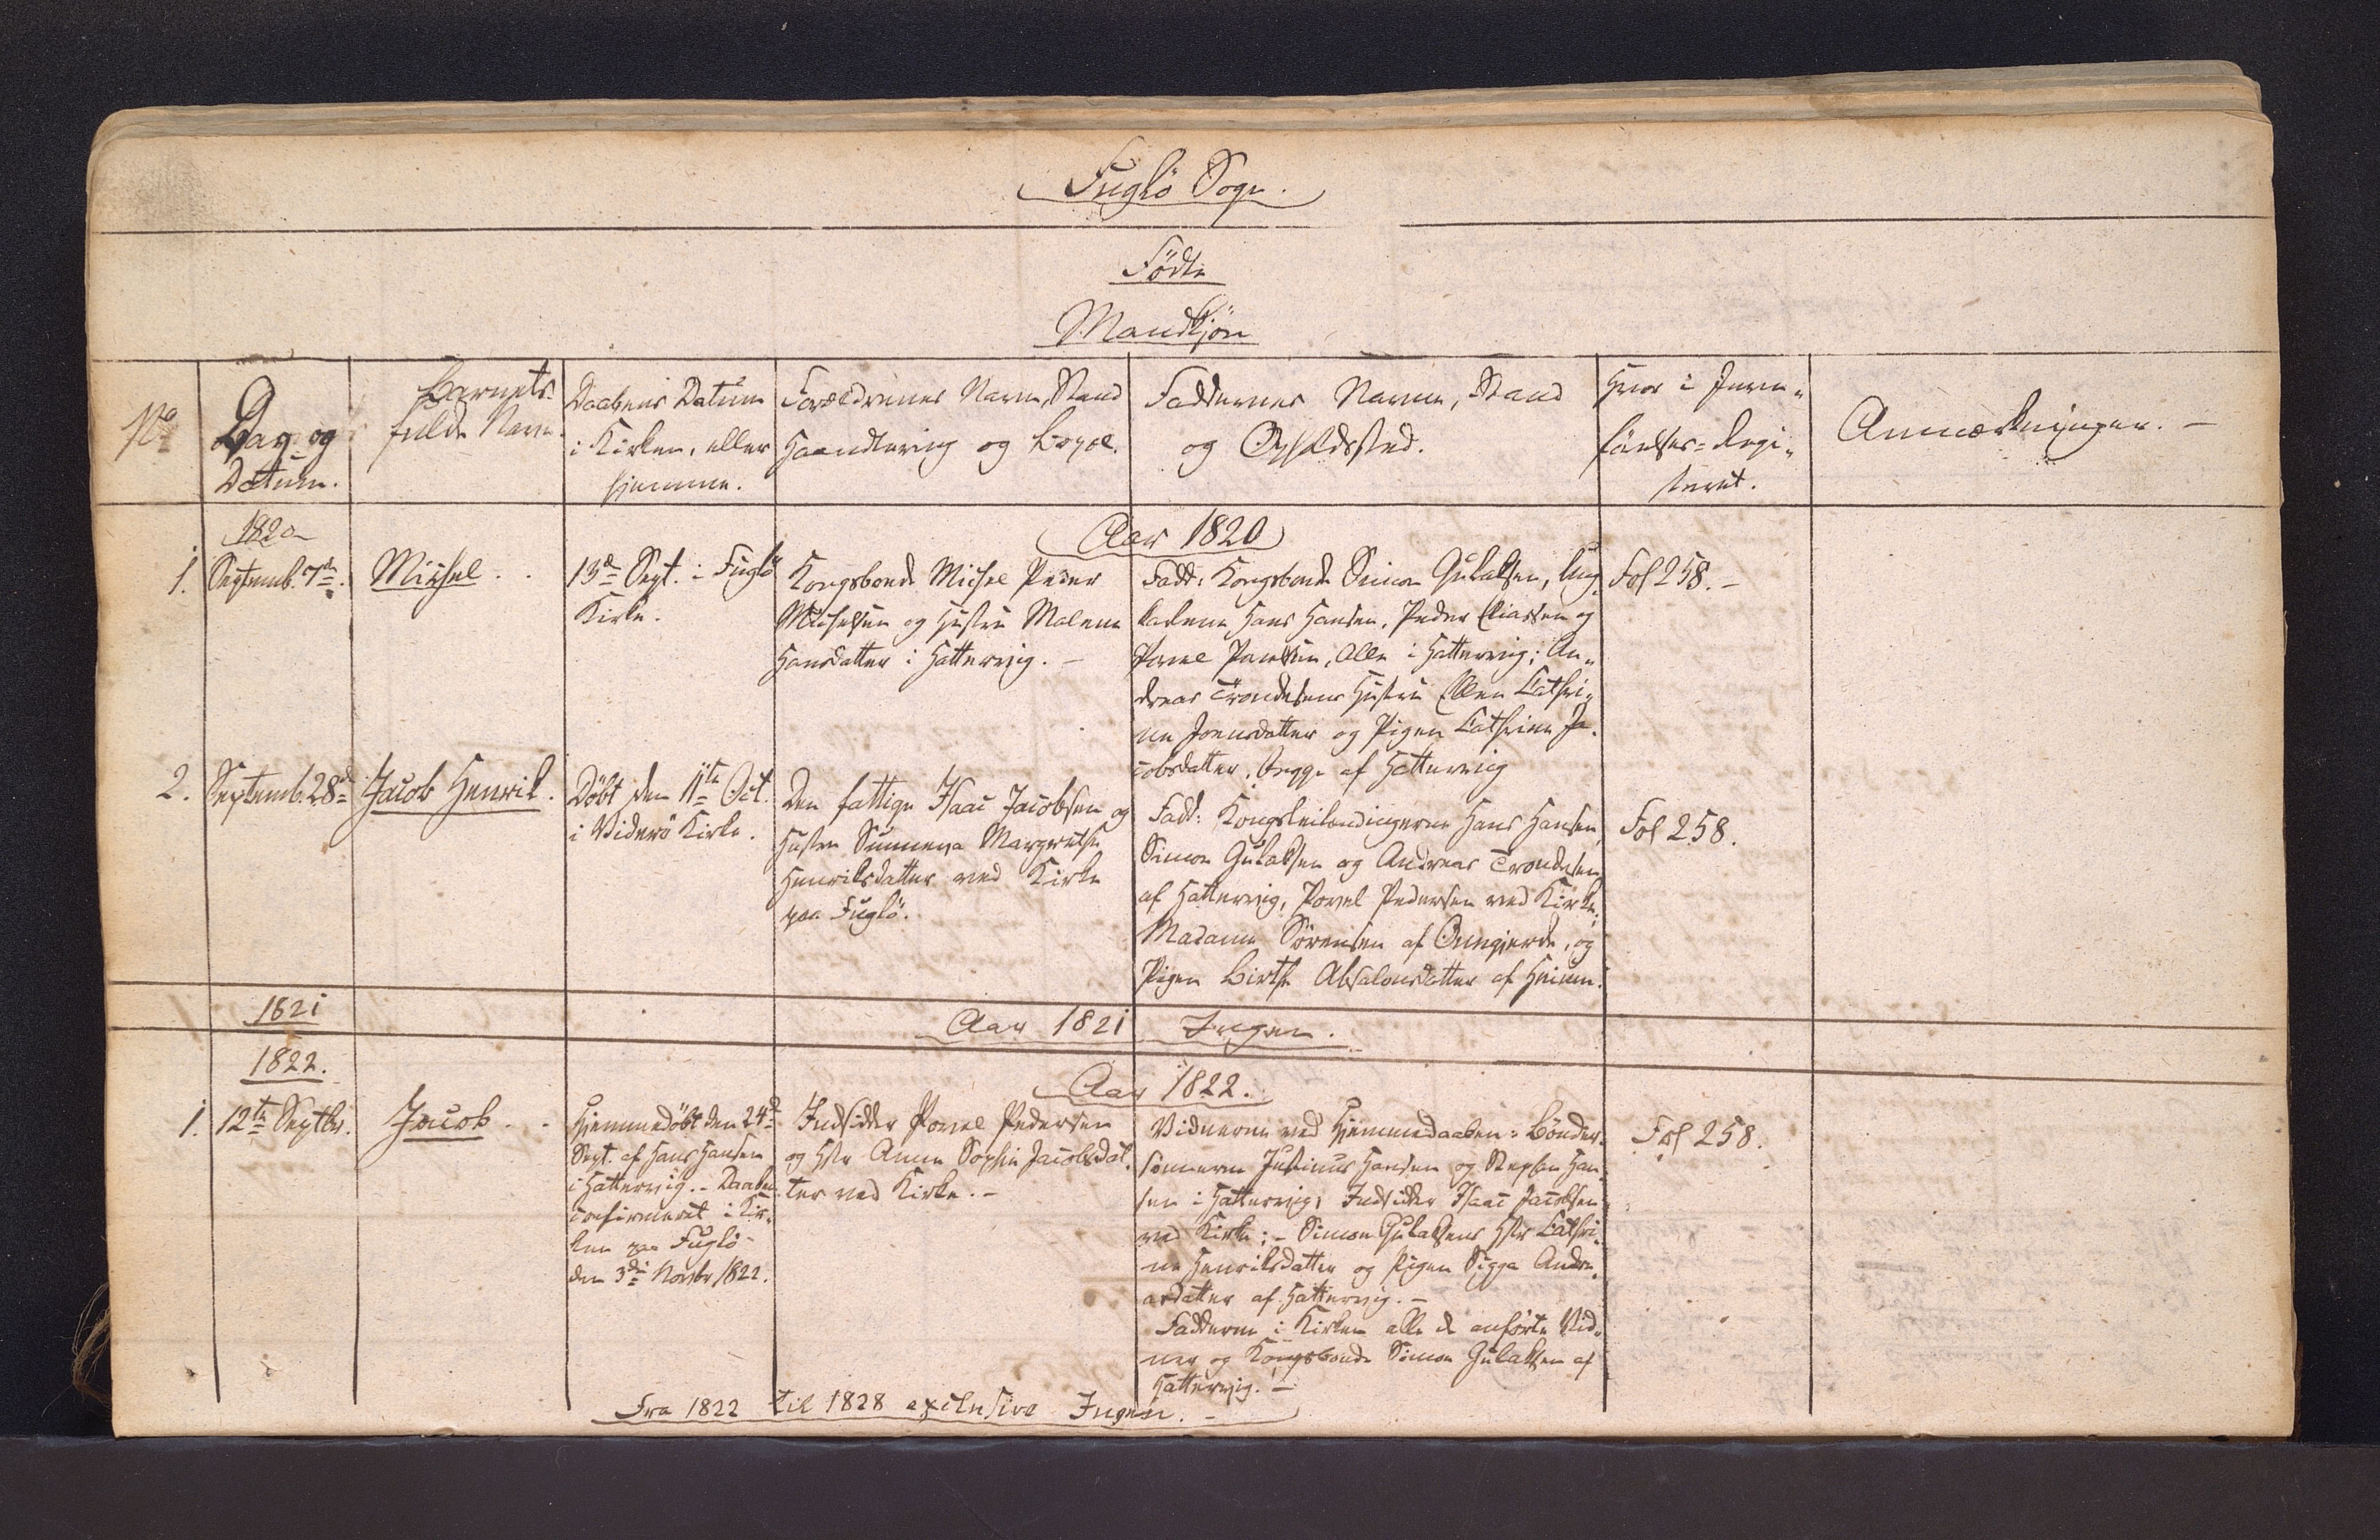 Fuglö Sogn.
Födte
Mandkjön
No
Dag og
Datum.
Barnets
fulde Navn
Daabens Datum
i Kirken, eller
hjemme.
Forældrenes Navn, Stand
Haandtering og Bopæl.
Faddernes Navne, Stand
og Opholdssted.
Hvor i Jevn-
förelses-Regi-
steret.
Anmærkninger. -
1820
Aar 1820
1.
Septemb. 7de.
Michel.
13de Sept. i Fuglö
Kirke.
Kongsbonde Michel Peder
Michelsen og Hustru Malene
Hansdatter i Hattervig. -
Fadd: Kongsbonde Simon Gulaksen, Ung-
karlene Hans Hansen, Peder Eliassen og
Povel Povelsen, Alle i Hattervig; An-
dreas Trondesens Hustru Ellen Cathri-
ne Joensdatter og Pigen Cathrine Ja-
cobsdatter, Begge af Hattervig
Fol 258. -
2.
Septemb. 28de
Jacob Henrik.
Döbt den 11te Oct.
i Viderö Kirke.
Den fattige Isaac Jacobsen og
Hustru Sunneva Margrethe
Henriksdatter ved Kirke
paa Fuglö.
Fadd: Kongsleilændingerne Hans Hansen,
Simon Gulaksen og Andreas Trondesen
af Hattervig, Povel Pedersen ved Kirke;
Madame Sörensen af Onngjerde, og
Pigen Birthe Absalonsdatter af
Fol 258.
1821
Aar 1821 Ingen.
1822.
Aar 1822.
1.
12te Septbr.
Jacob.
Hjemmedöbt den 24de
Sept. af Hans Hansen
i Hattervig. - Daaben
confirmeret i Kir-
ken paa Fuglö
den 3die Novbr 1822.
Indsidder Povel Pedersen
og Hstr Anne Sophie Jacobsdat-
ter ved Kirke. -
Vidnerne ved Hjemmedaaben: Bönder-
sönnerne Justinus Hansen og Stephan Han-
sen i Hattervig, Indsidder Isaac Jacobsen
ved Kirke; - Simon Gulaksens Hstr Cathri-
ne Henriksdatter og Pigen Sigga Andre-
asdatter af Hattervig. -
Fadderne i Kirken alle de anförte Vid-
ner og Kongsbonde Simon Gulaksen af
Hattervig. -
Fol 258.
Fra 1822 til 1828 exclusive Ingen. -